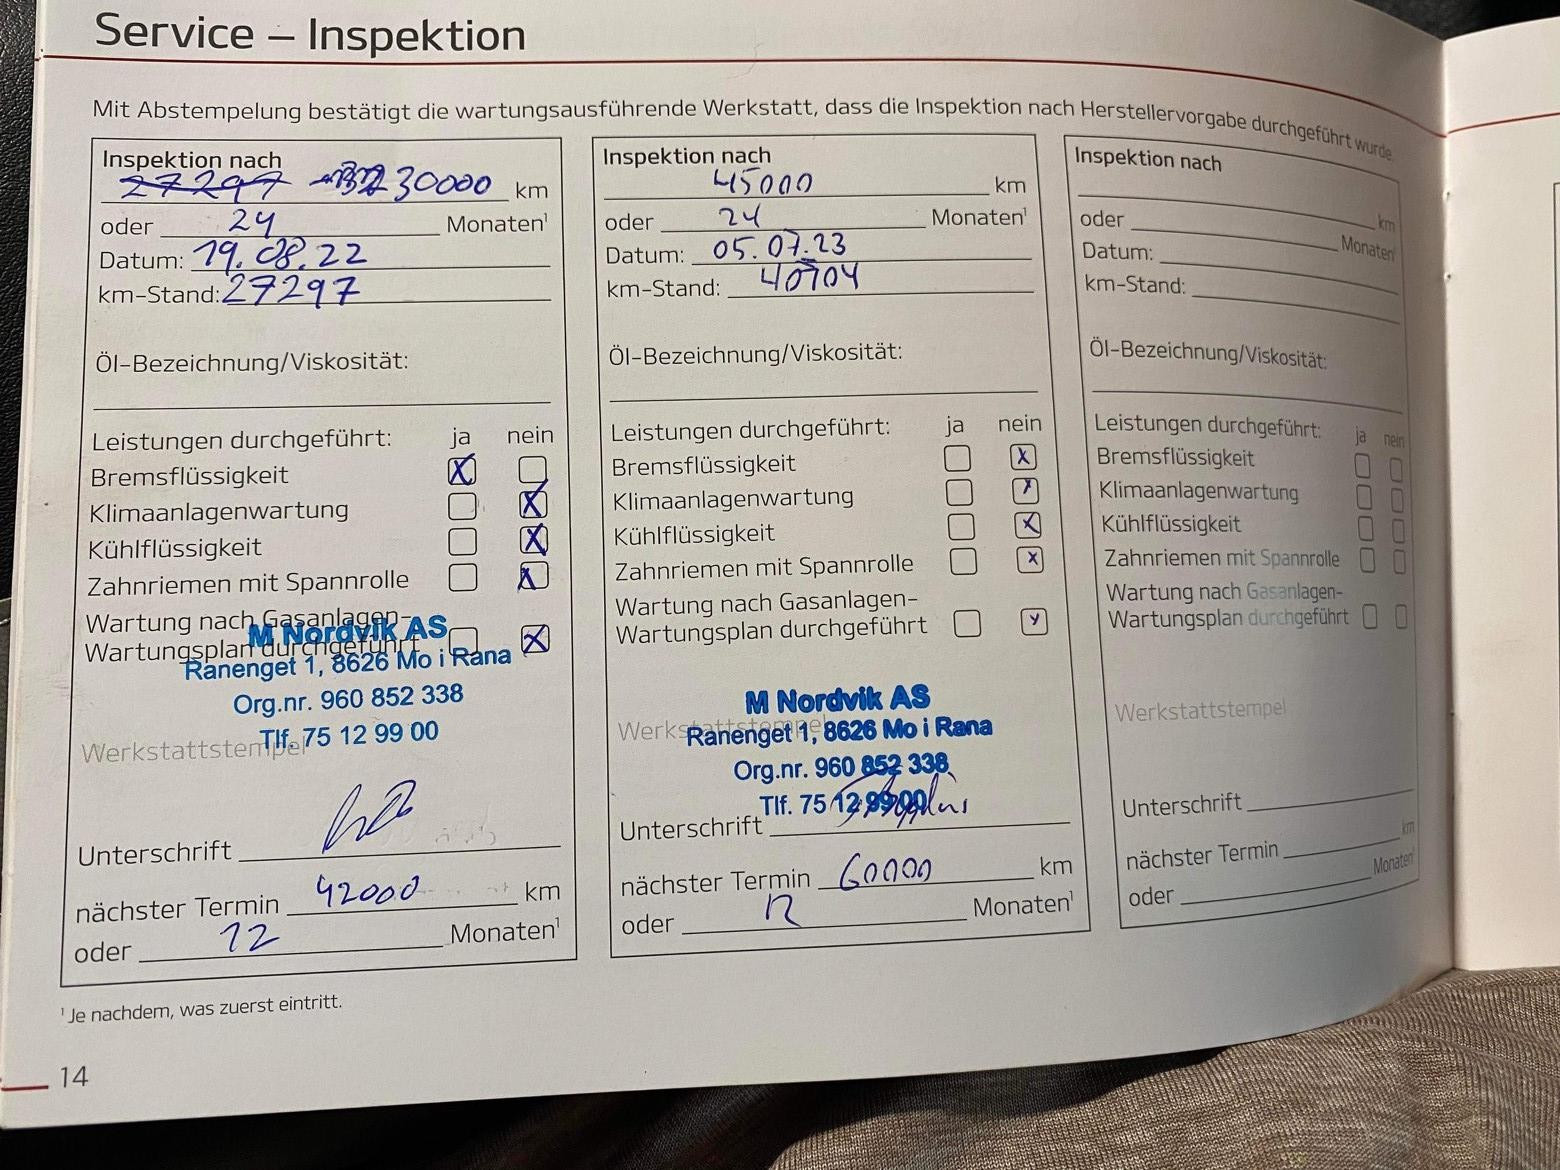 Service – Inspektion
Mit Abstempelung bestätigt die wartungsausführende Werkstatt, dass die Inspektion nach Herstellervorgabe durchgeführt wurde.
Inspektion nach
27297 30000 km
oder 24 Monaten¹
Datum: 19.08.22
km-Stand: 27297
Öl-Bezeichnung/Viskosität:
Leistungen durchgeführt: ja nein
Bremsflüssigkeit X
Klimaanlagenwartung X
Kühlflüssigkeit X
Zahnriemen mit Spannrolle X
Wartung nach Gasanlagen-
Wartungsplan durchgeführt X
M Nordvik AS
Ranenget 1, 8626 Mo i Rana
Org.nr. 960 852 338
Tlf. 75 12 99 00
Werkstattstempel
Unterschrift
nächster Termin 42000 km
oder 12 Monaten¹
Inspektion nach
45000 km
oder 24 Monaten¹
Datum: 05.07.23
km-Stand: 40704
Öl-Bezeichnung/Viskosität:
Leistungen durchgeführt: ja nein
Bremsflüssigkeit x
Klimaanlagenwartung x
Kühlflüssigkeit x
Zahnriemen mit Spannrolle x
Wartung nach Gasanlagen-
Wartungsplan durchgeführt x
M Nordvik AS
Werkstattstempel
Ranenget 1, 8626 Mo i Rana
Org.nr. 960 852 338
Tlf. 75 12 99 00
Unterschrift
nächster Termin 60000 km
oder 12 Monaten¹
Inspektion nach
km
oder Monaten¹
Datum:
km-Stand:
Öl-Bezeichnung/Viskosität:
Leistungen durchgeführt: ja nein
Bremsflüssigkeit
Klimaanlagenwartung
Kühlflüssigkeit
Zahnriemen mit Spannrolle
Wartung nach Gasanlagen-
Wartungsplan durchgeführt
Werkstattstempel
Unterschrift
nächster Termin km
oder Monaten¹
¹ Je nachdem, was zuerst eintritt.
14